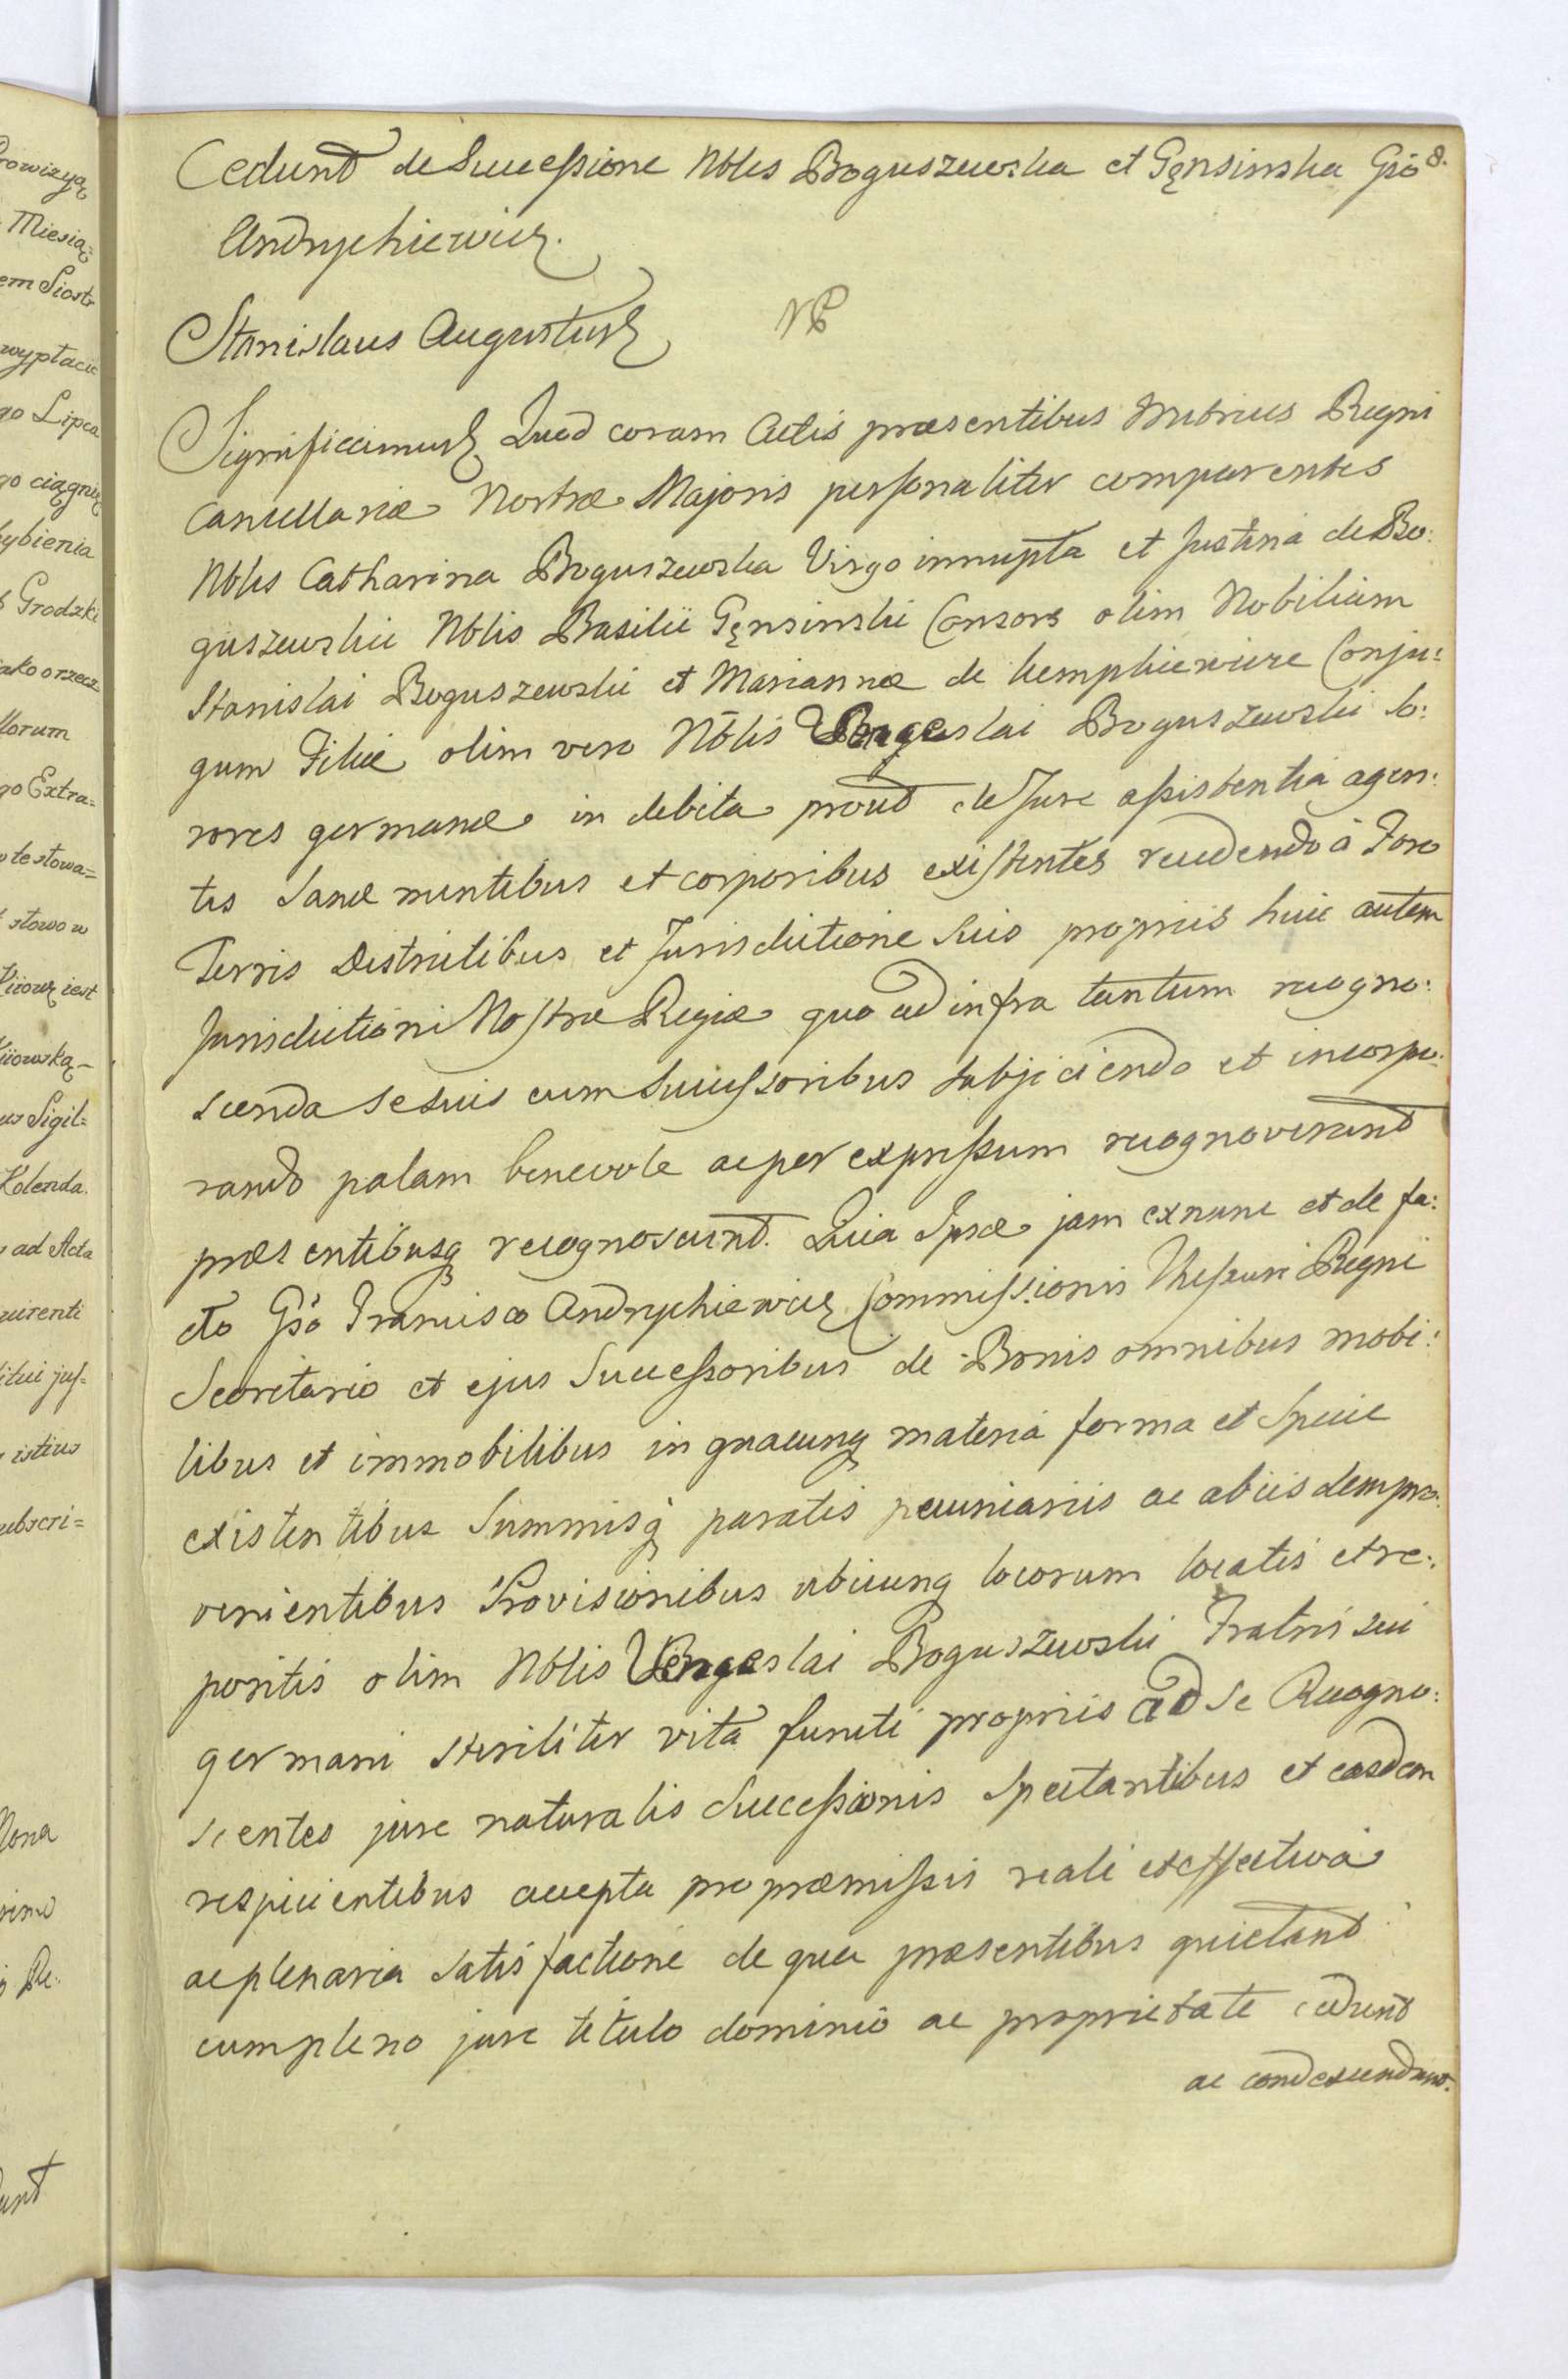 8.
Cedunt de Successione Nbles Boguszewska et Gęnsinska Gso
Andrychiewicz.
Stanislaus Augustus
Significamus Quod coram Actis præsentibus Metrices Regni
Cancellariæ Nostræ Majoris personaliter comparentes
Nbles Catharina Boguszewska Virgo innupta et Justina de Bo:
guszewskie Nblis Basilii Gęnsinski Consors olim Nobilium
Stanislai Boguszewski et Mariannæ de Kemphiewicze Conju:
gum Filiæ olim vero Nblis Vengeslai Boguszewski So:
rores germanæ in debita prout de Jure assistentia agen:
tes Sanæ mentibus et corporibus existentes recedendo à Foro
Terris Districtibus et Jurisdictione Suis propriis huic autem
Jurisdictioni Nostræ Regiæ quo ad infra tantum recogno:
scenda se suis cum Successoribus subjiciendo et incorpo:
rando palam benevole ac per expressum recognoverunt
præsentibusq recognoscunt. Quia Ipsæ jam exnunc et de fa:
cto Gso Francisco Andrychiewicz Commissionis Thesauri Regni
Secretario et ejus Successoribus de Bonis omnibus mobi:
libus et immobilibus in quacunq materia forma et Specie
existentibus Summisq paratis pecuniariis ac abiisdem pro:
venientibus Provisionibus ubicunq locorum locatis et re:
poritis olim Nblis Vengeslai Boguszewski Fratris sui
germani steriliter vita functi propriis ad se Recogno:
scentes jure naturalis Successionis Spectantibus et easdem
respicientibus accepta pro præmissis reali et effectiva
ac plenaria satisfactione de qua præsentibus quietant
cum pleno jure titulo dominio ac proprietate cedunt
ac condescendunt.